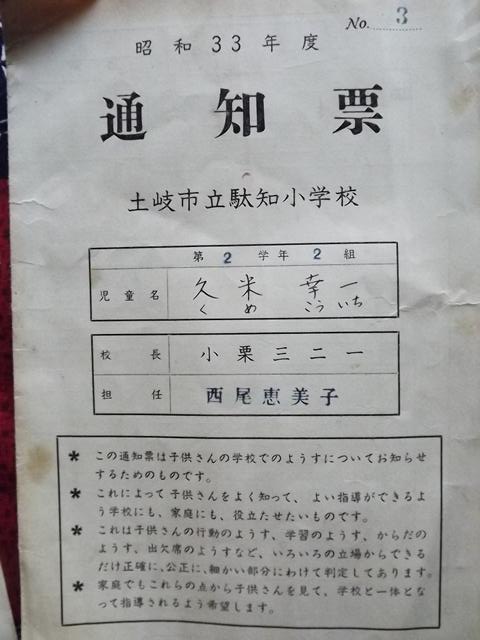 No. 3
昭和33年度
通知票
土岐市立駄知小学校
第2学年2組
児童名 久米 幸一
くめ こういち
校長 小栗三二一
担任 西尾恵美子
* この通知票は子供さんの学校でのようすについてお知らせ
するためのものです。
* これによって子供さんをよく知って、よい指導ができるよ
う学校にも、家庭にも、役立たせたいものです。
* これは子供さんの行動のようす、学習のようす、からだの
ようす、出欠席のようすなど、いろいろの立場からできる
だけ正確に、公正に、細かい部分にわけて判定してあります。
* 家庭でもこれらの点から子供さんを見て、学校と一体とな
って指導されるよう希望します。